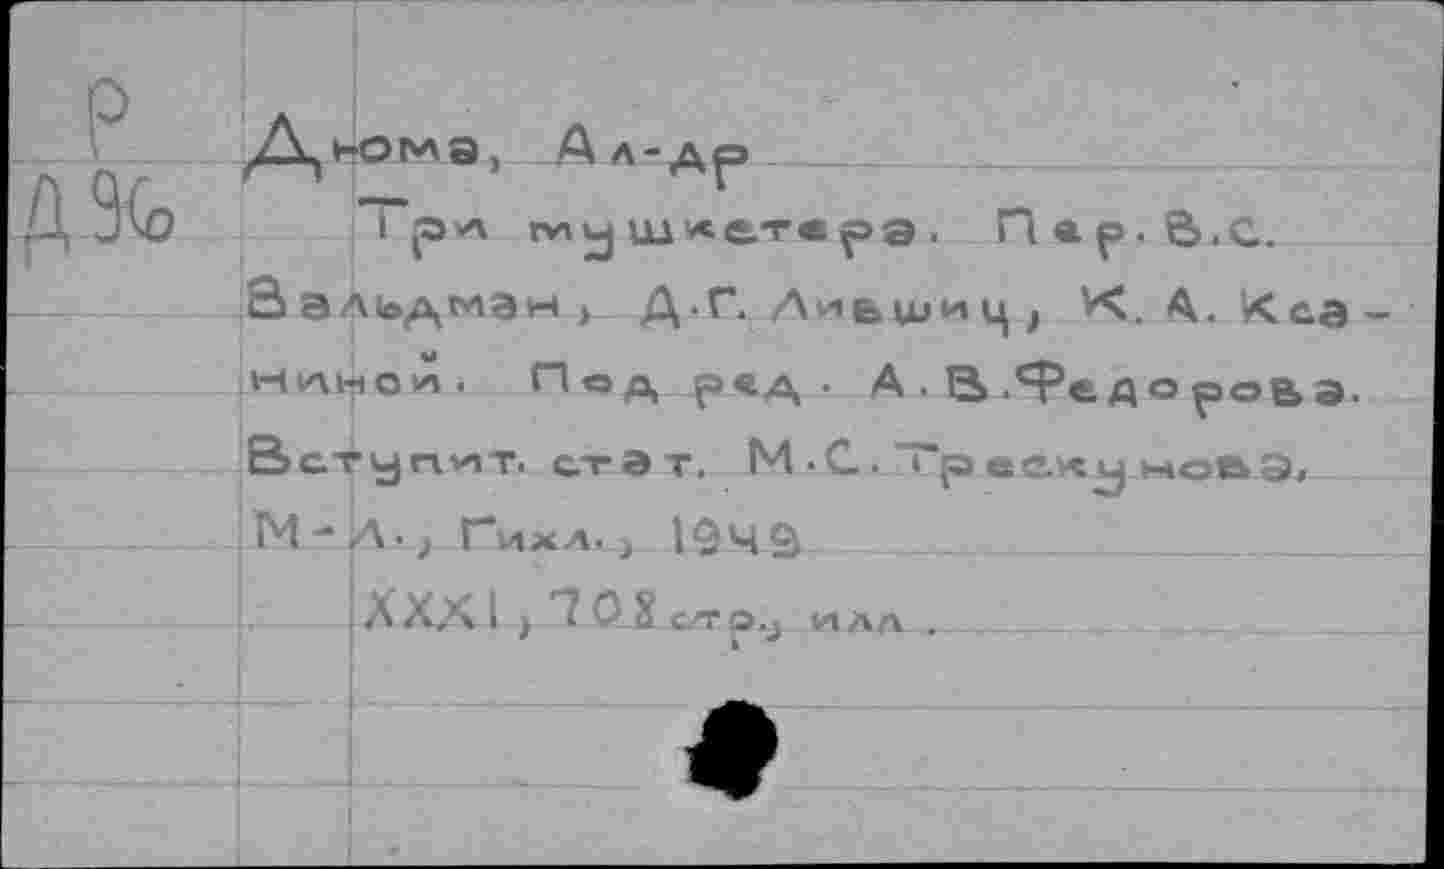 Р
Д 96
Дюма, Ал-др
Три мушкетера. Пер. В.С.
Вальдман, Д.Г. Лившиц, К.А. Кса-
ниной. Под ред. А.В.Федорова.
Вступит. стат. М.С. Трескунова,
М-Л., Гихл., 1949
XXXI, 708 стр., илл.